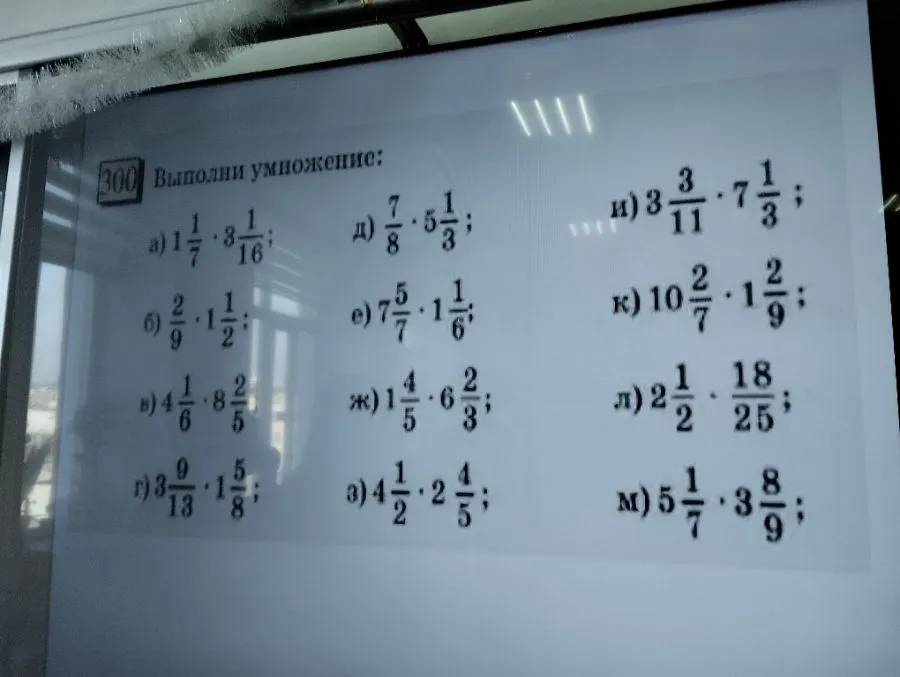 300 Выполни умножение:
а) 1 1/7 · 3 1/16;
б) 2/9 · 1 1/2;
в) 4 1/6 · 8 2/5
г) 3 9/13 · 1 5/8;
д) 7/8 · 5 1/3;
е) 7 5/7 · 1 1/6;
ж) 1 4/5 · 6 2/3;
з) 4 1/2 · 2 4/5;
и) 3 3/11 · 7 1/3;
к) 10 2/7 · 1 2/9;
л) 2 1/2 · 18/25;
м) 5 1/7 · 3 8/9;